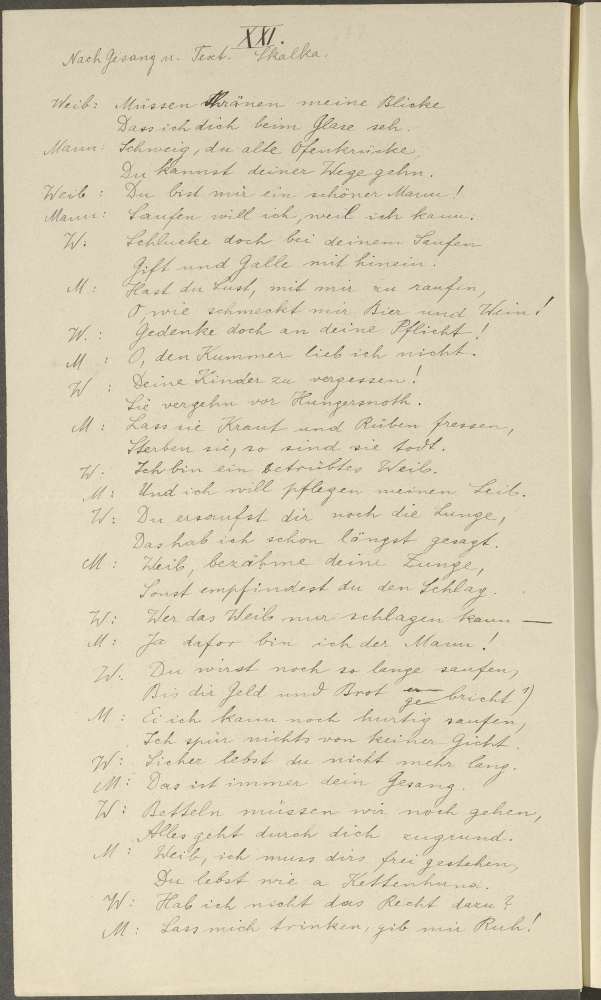 XXI.
Nach Gesang u. Text. Skalka.
Weib: Müssen Thränen meine Blicke
Dass ich dich beim Glase seh.
Mann: Schweig, du alte Ofenkrücke,
Du kannst deiner Wege gehn.
Weib: Du bist mir ein schöner Mann!
Mann: Saufen will ich, weil ich kann.
W: Schlucke doch bei deinem Saufen
Gift und Galle mit hinein.
M: Hast du Lust, mit mir zu raufen,
O, wie schmeckt mir Bier und Wein!
W.: Gedenke doch an deine Pflicht!
M: O, den Kummer lieb ich nicht.
W: Deine Kinder zu vergessen!
Sie vergehn vor Hungersnoth.
M: Lass sie Kraut und Rüben fressen,
Sterben sie, so sind sie todt.
W: Ich bin ein betrübtes Weib.
M: Und ich will pflegen meinen Leib.
W: Du ersaufst dir noch die Lunge,
Das hab ich schon längst gesagt.
M: Weib, bezähme deine Zunge,
Sonst empfindest du den Schlag.
W: Wer das Weib nur schlagen kann —
M: Ja dafor bin ich der Mann!
W: Du wirst noch so lange saufen,
Bis dir Geld und Brot er bricht 1)
ge
M: Ei ich kann noch hurtig raufen,
Ich spür nichts von keiner Gicht.
W: Sicher lebst du nicht mehr lang.
M: Das ist immer dein Gesang.
W: Betteln müssen wir noch gehen,
Alles geht durch dich zugrund.
M: Weib, ich muss dirs frei gestehen,
Du lebst wie a Kettenhund.
W: Hab ich nicht das Recht dazu?
M: Lass mich trinken, gib mir Ruh!